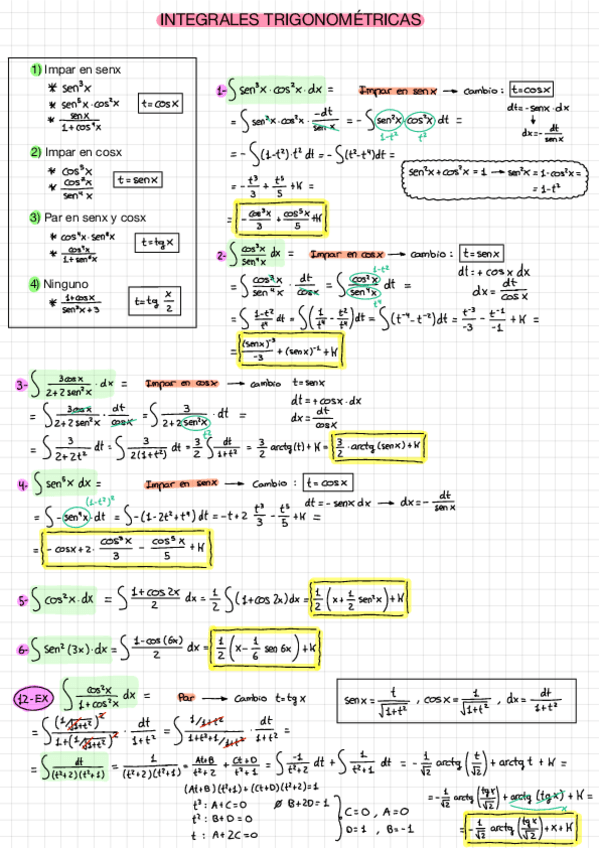 INTEGRALES TRIGONOMÉTRICAS
1) Impar en senx
* sen³x
* sen⁵x·cos²x
* senx / 1+cos⁴x
t=cosx
2) Impar en cosx
* cos⁵x
* cos³x / sen⁴x
t=senx
3) Par en senx y cosx
* cos⁴x·sen⁸x
* cos²x / 1+sen⁴x
t=tgx
4) Ninguno
* 1+cosx / sen²x+3
t=tg x/2
1- ∫sen³x·cos²x·dx = Impar en senx → cambio: t=cosx
dt=-senx·dx
dx=-dt/senx
= ∫sen³x·cos²x·-dt/senx = -∫sen²x cos²x dt =
1-t² t²
= -∫(1-t²)·t² dt = -∫(t²-t⁴)dt =
sen²x+cos²x=1 → sen²x=1-cos²x=
=1-t²
= -t³/3 + t⁵/5 + K =
= -cos³x/3 + cos⁵x/5 + K
2- ∫cos³x/sen⁴x dx = Impar en cosx → cambio: t=senx
dt=+cosx dx
dx=dt/cosx
= ∫cos³x/sen⁴x · dt/cosx = ∫cos²x/sen⁴x dt =
1-t²
t⁴
= ∫1-t²/t⁴ dt = ∫(1/t⁴ - t²/t⁴)dt = ∫(t⁻⁴-t⁻²)dt = t⁻³/-3 - t⁻¹/-1 + K =
= (senx)⁻³/-3 + (senx)⁻¹ + K
3- ∫3cosx/2+2sen²x · dx = Impar en cosx → cambio t=senx
dt=+cosx·dx
dx=dt/cosx
= ∫3cosx/2+2sen²x · dt/cosx = ∫3/2+2sen²x · dt =
t²
= ∫3/2+2t² dt = ∫3/2(1+t²) dt = 3/2 ∫dt/1+t² = 3/2 arctg(t)+K = 3/2·arctg(senx)+K
4- ∫sen⁵x dx = Impar en senx → Cambio: t=cosx
dt=-senx dx → dx=-dt/senx
(1-t²)²
= ∫-sen⁴x·dt = ∫-(1-2t²+t⁴)dt = -t+2 t³/3 - t⁵/5 + K =
= -cosx+2·cos³x/3 - cos⁵x/5 + K
5- ∫cos²x·dx = ∫1+cos2x/2 dx = 1/2 ∫(1+cos2x)dx = 1/2 (x+1/2 sen²x)+K
6- ∫sen²(3x)·dx = ∫1-cos(6x)/2 dx = 1/2 (x-1/6 sen 6x)+K
12-EX ∫cos²x/1+cos²x dx = Par → Cambio t=tgx
senx=t/√1+t² , cosx=1/√1+t² , dx=dt/1+t²
= ∫(1/√1+t²)²/1+(1/√1+t²)² · dt/1+t² = ∫1/1+t²/1+t²+1/1+t² · dt/1+t² =
= ∫dt/(t²+2)(t²+1) = 1/(t²+2)(t²+1) = At+B/t²+2 + Ct+D/t²+1 = ∫-1/t²+2 dt + ∫1/t²+1 dt = -1/√2 arctg(t/√2)+arctg t+K =
(At+B)(t²+1)+(Ct+D)(t²+2)=1
t³: A+C=0 ∅ B+2D=1
t²: B+D=0
t : A+2C=0
C=0 , A=0
D=1 , B=-1
= -1/√2 arctg(tgx/√2)+arctg(tgx)+K =
x
= -1/√2 arctg(tgx/√2)+x+K